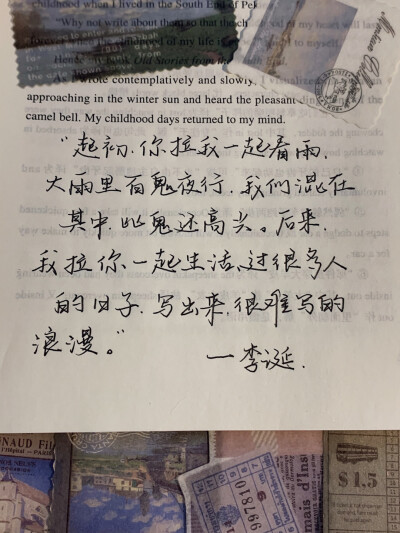 childhood when I lived in the South End of Pe
"Why not write about them so that the ch
of my heart will las
hood of my life is
to myself.
Hence my book Old Stories from the
As I wrote contemplatively and slowly, I visualiz
approaching in the winter sun and heard the pleasant
camel bell. My childhood days returned to my mind.
"起初，你拉我一起看雨，
大雨里百鬼夜行，我们混在
其中，比鬼还高兴。后来，
我拉你一起生活，过很多人
的日子，写出来，很难写的
浪漫。"
—李诞.
NAUD Fil
l'Hôpital — PARIS
997810
mais d'Ins
$1.5